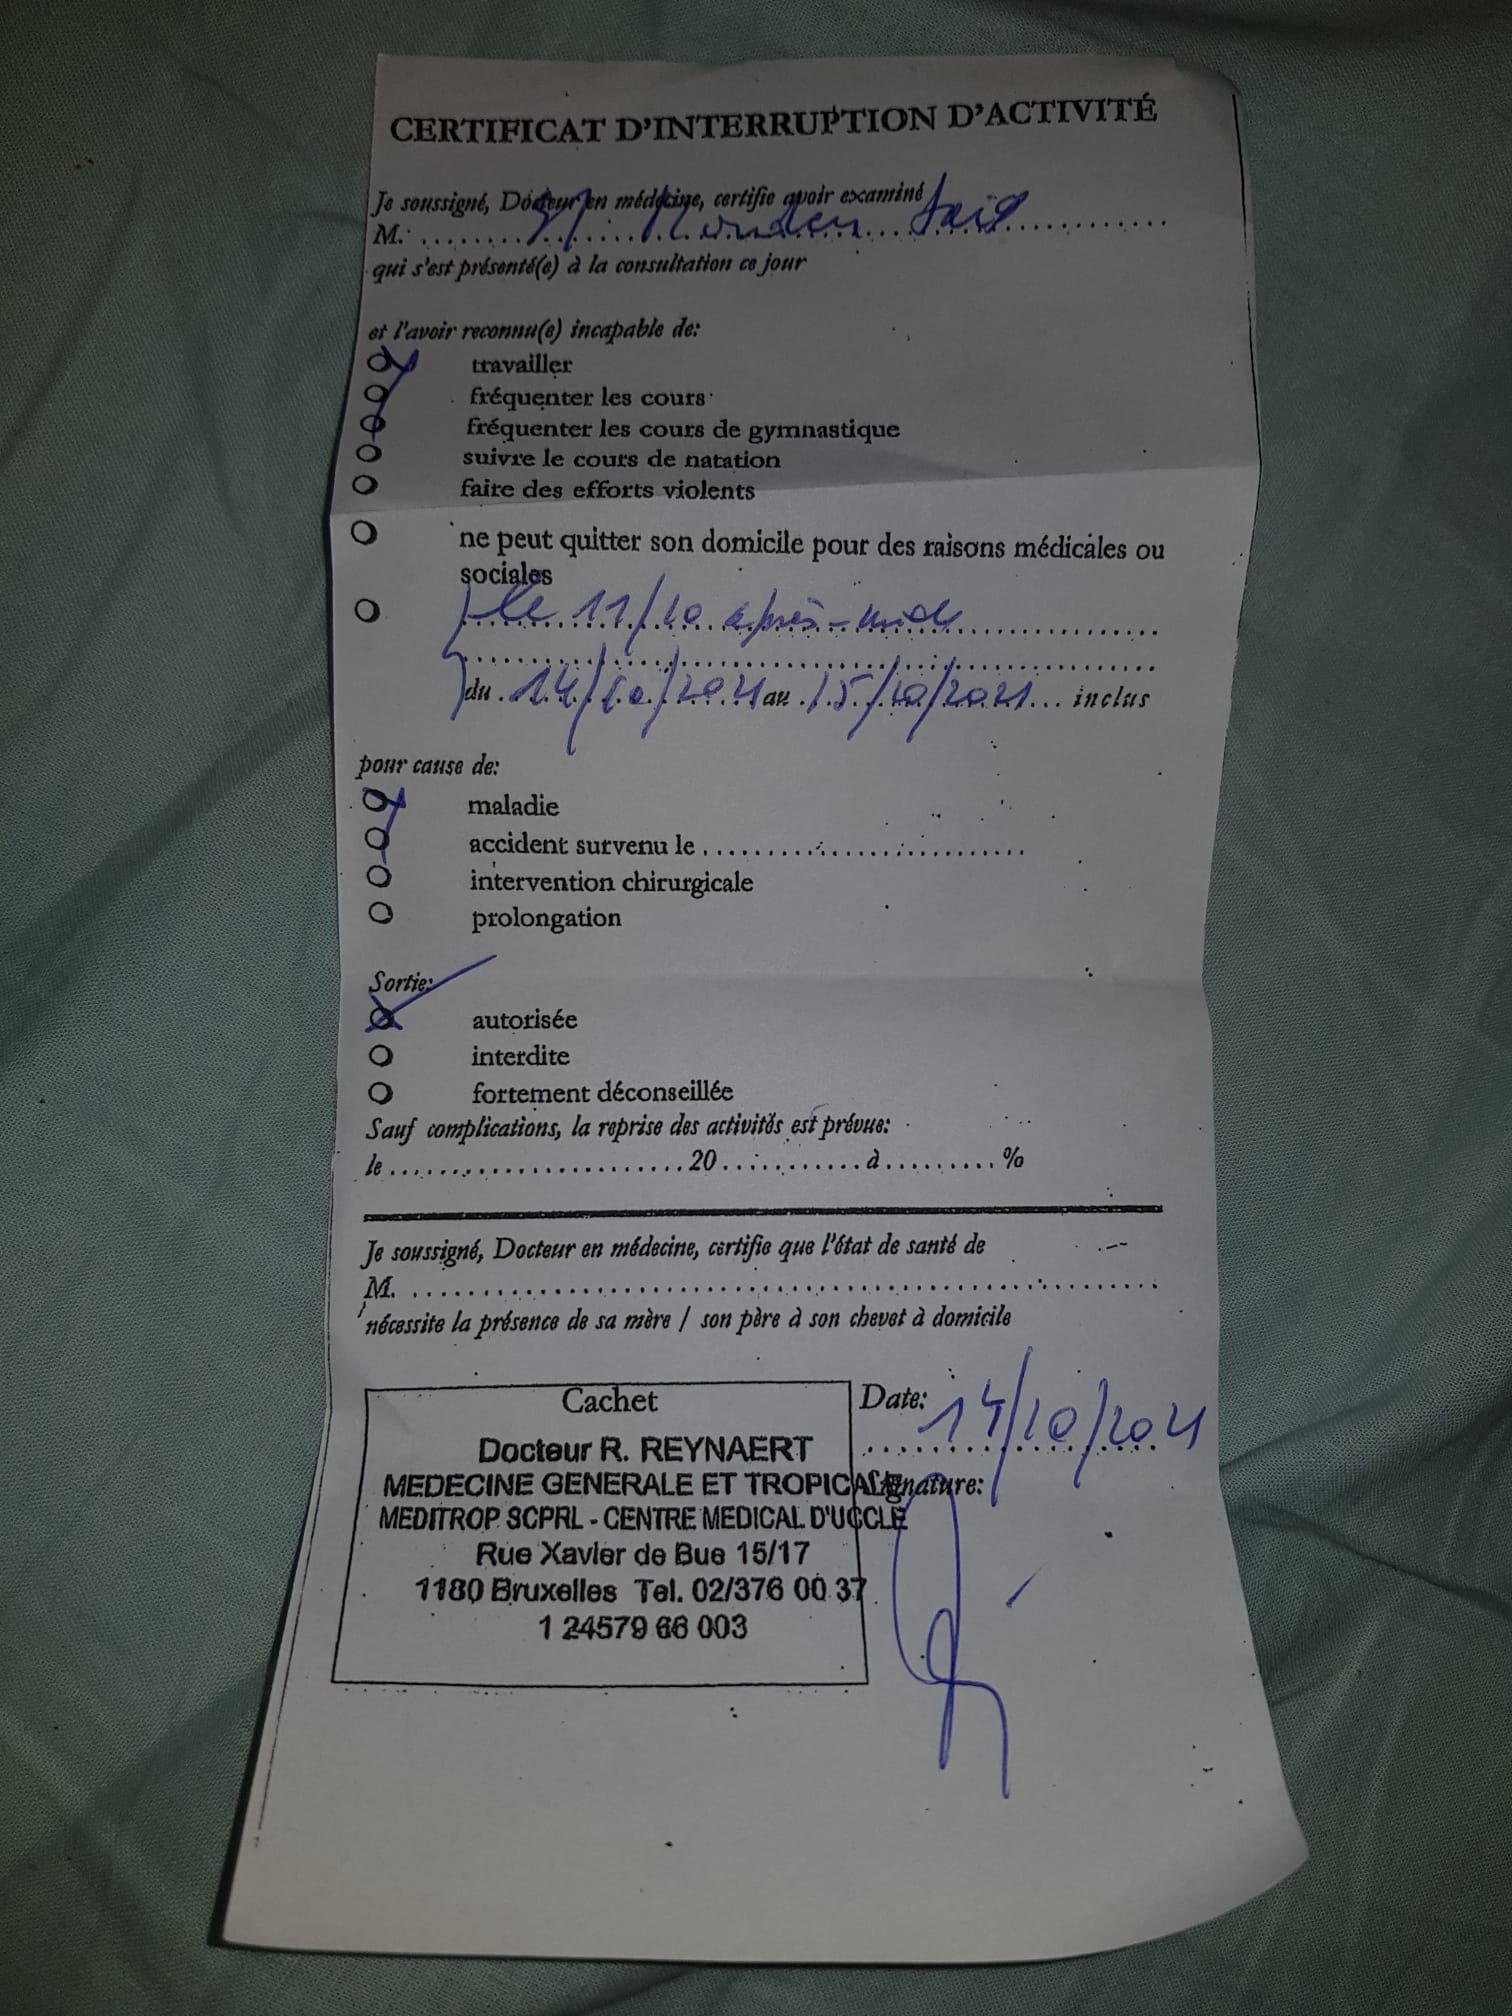 CERTIFICAT D'INTERRUPTION D'ACTIVITÉ
Je soussigné, Docteur en médecine, certifie avoir examiné
M. ....................
qui s'est présenté(e) à la consultation ce jour
et l'avoir reconnu(e) incapable de:
travailler
fréquenter les cours
fréquenter les cours de gymnastique
suivre le cours de natation
faire des efforts violents
ne peut quitter son domicile pour des raisons médicales ou
sociales
le 11/10 après-midi
du 14/10/2021 au 15/10/2021 ... inclus
pour cause de:
maladie
accident survenu le ....................
intervention chirurgicale
prolongation
Sortie:
autorisée
interdite
fortement déconseillée
Sauf complications, la reprise des activités est prévue:
le ....................20...........à.........%
Je soussigné, Docteur en médecine, certifie que l'état de santé de
M. ....................
nécessite la présence de sa mère / son père à son chevet à domicile
Cachet
Date: 14/10/2021
Docteur R. REYNAERT
MEDECINE GENERALE ET TROPICALE
Signature:
MEDITROP SCPRL - CENTRE MEDICAL D'UCCLE
Rue Xavier de Bue 15/17
1180 Bruxelles Tel. 02/376 00 37
1 24579 66 003